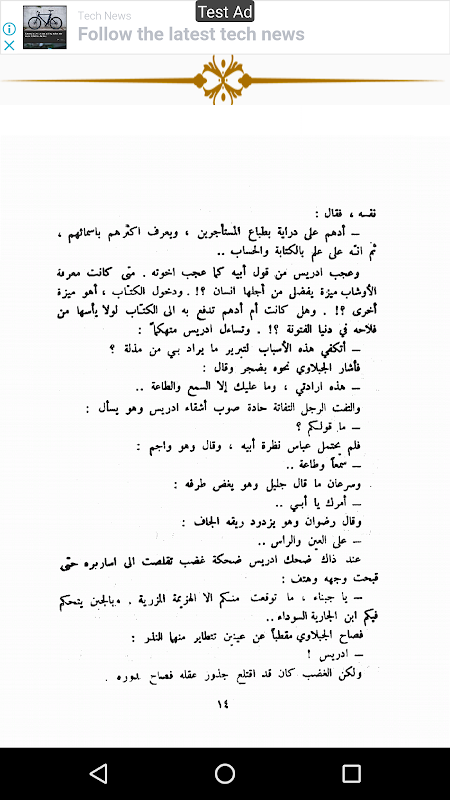 Test Ad
Tech News
Follow the latest tech news
نفسه ، فقال :
— أدهم على دراية بطباع المستأجرين ، ويعرف اكثرهم باسمائهم ،
ثم انه على علم بالكتابة والحساب ..
وعجب ادريس من قول أبيه كما عجب اخوته . متى كانت معرفة
الأوشاب ميزة يفضل من أجلها انسان ؟! . ودخول الكتّاب ، أهو ميزة
أخرى ؟! . وهل كانت أم أدهم تدفع به الى الكتّاب لولا يأسها من
فلاحه في دنيا الفتونة ؟! . وتساءل ادريس متهكماً :
— أتكفي هذه الأسباب لتبرير ما يراد بي من مذلة ؟
فأشار الجبلاوي نحوه بضجر وقال :
— هذه ارادتي ، وما عليك إلا السمع والطاعة ..
والتفت الرجل التفاتة حادة صوب أشقاء ادريس وهو يسأل :
— ما قولكم ؟
فلم يحتمل عباس نظرة أبيه ، وقال وهو واجم :
— سمعاً وطاعة ..
وسرعان ما قال جليل وهو يغض طرفه :
— أمرك يا أبي ..
وقال رضوان وهو يزدرد ريقه الجاف :
— على العين والراس ..
عند ذاك ضحك ادريس ضحكة غضب تقلصت الى اساريره حتى
قبحت وجهه وهتف :
— يا جبناء ، ما توقعت منكم الا الهزيمة المزرية . وبالجبن يتحكم
فيكم ابن الجارية السوداء ..
فصاح الجبلاوي مقطباً عن عينين تتطاير منهما النذر :
— ادريس !
ولكن الغضب كان قد اقتلع جذور عقله فصاح بدوره .
١٤